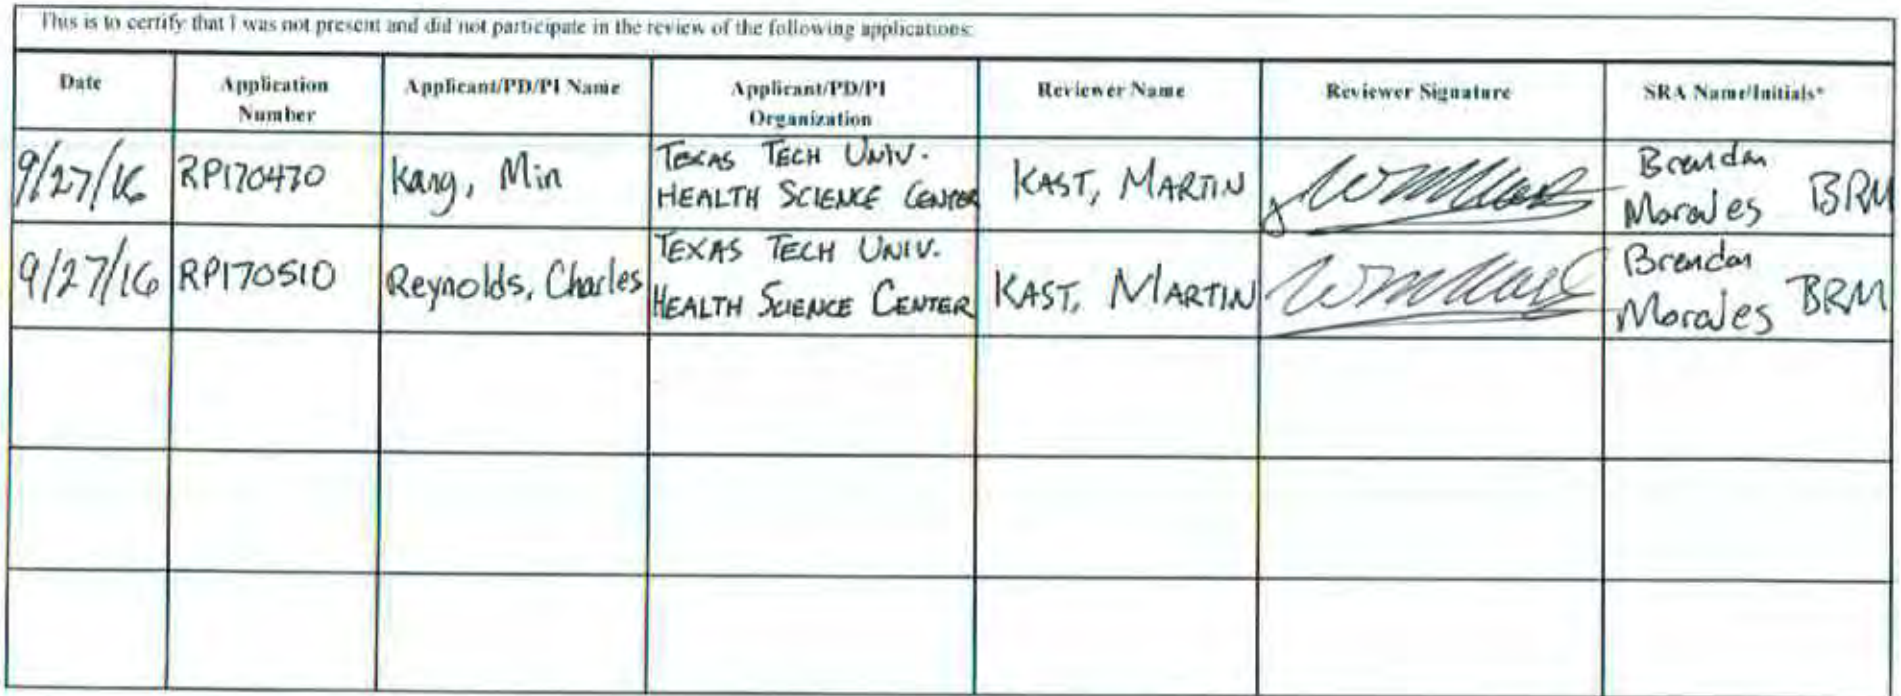 This is to certify that I was not present and did not participate in the review of the following applications:
Date Application Number Applicant/PD/PI Name Applicant/PD/PI Organization Reviewer Name Reviewer Signature SRA Name/Initials*
9/27/16 RP170470 Kang, Min TEXAS TECH UNIV. HEALTH SCIENCE CENTER KAST, MARTIN Brendan Morales BRM
9/27/16 RP170510 Reynolds, Charles TEXAS TECH UNIV. HEALTH SCIENCE CENTER KAST, MARTIN Brendan Morales BRM